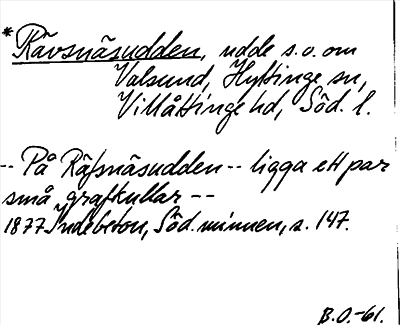 *Rävsnäsudden, udde s.o. om
Valsund, Hyltinge sn,
Villåttinge hd, Söd. l.
-- På Räfsnäsudden -- ligga ett par
små grafkullar --
1877 Indebetou, Söd. minnen, s. 147.
B.O.-61.